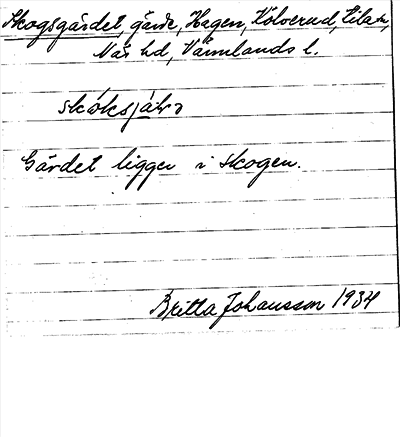 Skogsgärdet, gärde, Hagen, Kolverud, Eila sn,
Näs hd, Värmlands l.
skóksjàḷɔ
Gärdet ligger i skogen.
Britta Johansson 1934